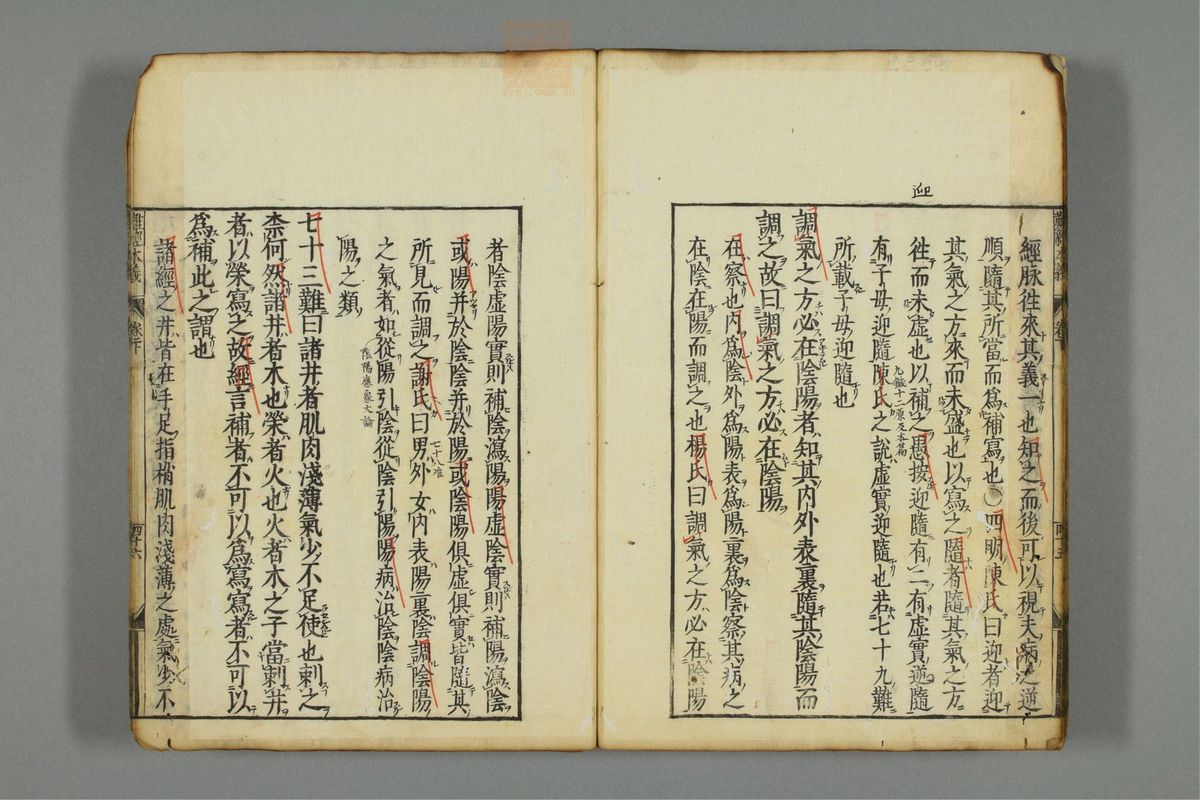 迎
經脉徃來其義一也知之而後可以視夫病之逆
順隨其所當而爲補寫也○四明陳氏曰迎者迎
其氣之方來而未盛也以寫之隨者隨其氣之方
徃而未虛也以補之愚按迎隨有二有虛實迎隨
有子母迎隨陳氏之說虛實迎隨也若七十九難
九鍼十二原及本篇
所載子母迎隨也
調氣之方必在陰陽者知其內外表裏隨其陰陽而
調之故曰調氣之方必在陰陽
在察也內爲陰外爲陽表爲陽裏爲陰察其病之
在陰在陽而調之也楊氏曰調氣之方必在陰陽
者陰虛陽實則補陰瀉陽陽虛陰實則補陽瀉陰
或陽并於陰陰并於陽或陰陽俱虛俱實皆隨其
所見而調之謝氏曰男外女內表陽裏陰調陰陽
七十八准
之氣者如從陽引陰從陰引陽陽病治陰陰病治
陰陽應象大論
陽之類
七十三難曰諸井者肌肉淺薄氣少不足使也刺之
柰何然諸井者木也榮者火也火者木之子當刺井
者以榮寫之故經言補者不可以爲寫寫者不可以
爲補此之謂也
諸經之井皆在手足指梢肌肉淺薄之處氣少不
難經本義
卷下
四十六